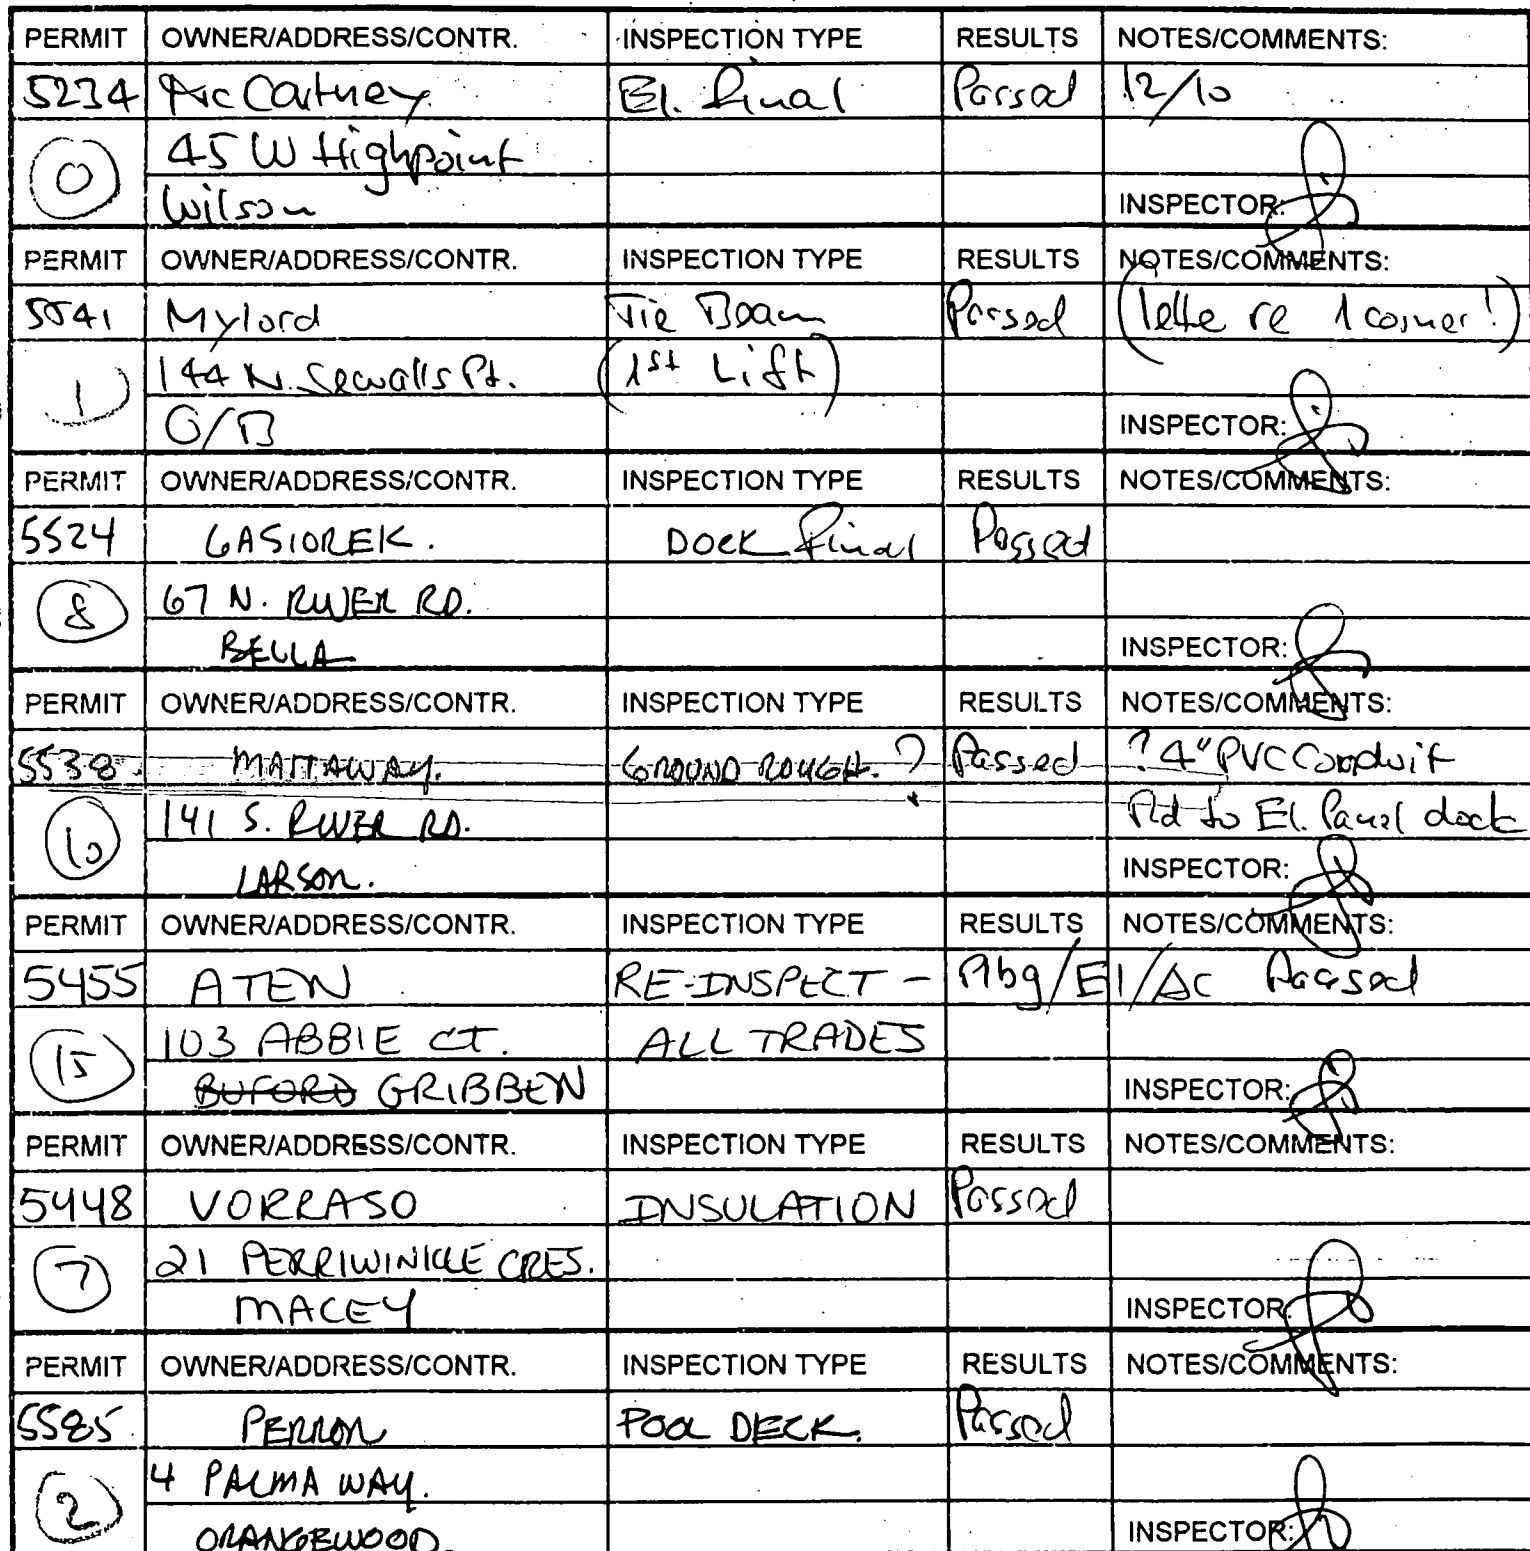 PERMIT OWNER/ADDRESS/CONTR. INSPECTION TYPE RESULTS NOTES/COMMENTS:
5234 McCartney El. final Passed 12/10
0 45 W Highpoint
Wilson INSPECTOR:
PERMIT OWNER/ADDRESS/CONTR. INSPECTION TYPE RESULTS NOTES/COMMENTS:
5541 Mylord Tie Beam Passed (lette re 1 corner!)
1 144 N. Sewalls Pt. (1st Lift)
O/B INSPECTOR:
PERMIT OWNER/ADDRESS/CONTR. INSPECTION TYPE RESULTS NOTES/COMMENTS:
5524 GASIOREK. DOCK final Passed
8 67 N. RIVER RD.
BELLA INSPECTOR:
PERMIT OWNER/ADDRESS/CONTR. INSPECTION TYPE RESULTS NOTES/COMMENTS:
5538 MATTAWAY. GROUND ROUGH. ? Passed ? 4" PVC Conduit
10 141 S. RIVER RD. to El. Panel dock
LARSON. INSPECTOR:
PERMIT OWNER/ADDRESS/CONTR. INSPECTION TYPE RESULTS NOTES/COMMENTS:
5455 ATEN RE-INSPECT - Plbg/El/AC Passed
15 103 ABBIE CT. ALL TRADES
BUFORD GRIBBEN INSPECTOR:
PERMIT OWNER/ADDRESS/CONTR. INSPECTION TYPE RESULTS NOTES/COMMENTS:
5448 VORRASO INSULATION Passed
7 21 PERRIWINKLE CRES.
MACEY INSPECTOR:
PERMIT OWNER/ADDRESS/CONTR. INSPECTION TYPE RESULTS NOTES/COMMENTS:
5585 PERRON POOL DECK. Passed
2 4 PALMA WAY.
ORANGEWOOD. INSPECTOR: